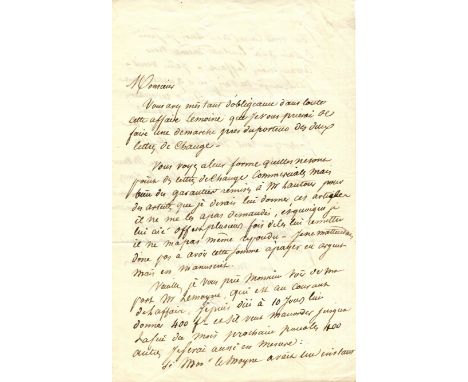 Monsieur
Vous avez mis tant d'obligeance dans toute
cette affaire Lemoine que je vous prierai de
faire une demarche près du porteur des deux
lettres de Change -
Vous voyez a leur forme quelles ne sont
point des lettres de Change Commerciales mais
des garanties remises à Mr Lautour pour
des articles que je devais lui donner ces articles
il ne me les a pas demandé, quoique je
lui aie offert plusieurs fois de les lui remettre
il ne m'a pas même repondu - Je ne m'attendais
donc pas a avoir cette somme a payer en argent
mais en manuscrit.
Veuillez je vous prie Monsieur voir de ma
part Mr Lemoyne, qui est au courant
de l'affaire. Je puis d'ici à 10 Jours lui
donner 400 et s'il veut m'accorder jusqua
la fin du mois prochain pour les 400
autres, je serai aussi en mesure :
Si Monr le Moyne avait un instant